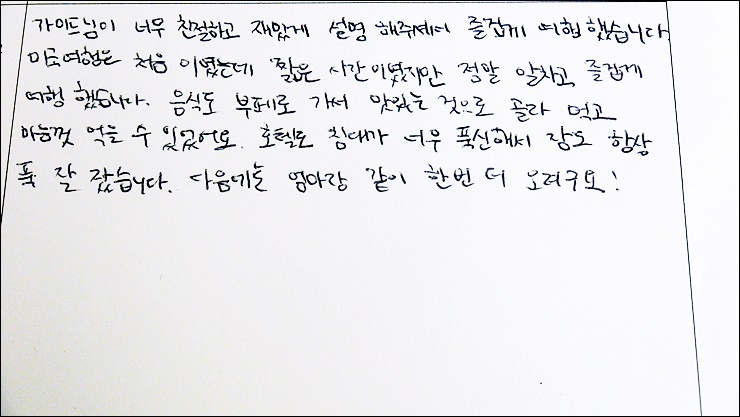 가이드님이 너무 친절하고 재밌게 설명 해주셔서 즐겁게 여행 했습니다.
미국여행은 처음 이였는데 짧은 시간이였지만 정말 알차고, 즐겁게
여행 했습니다. 음식도 부페로 가서 맛있는 것으로 골라 먹고
마음껏 먹을 수 있었어요. 호텔도 침대가 너무 푹신해서 잠도 항상
푹 잘 잤습니다. 다음에는 엄마랑 같이 한번 더 오려구요!